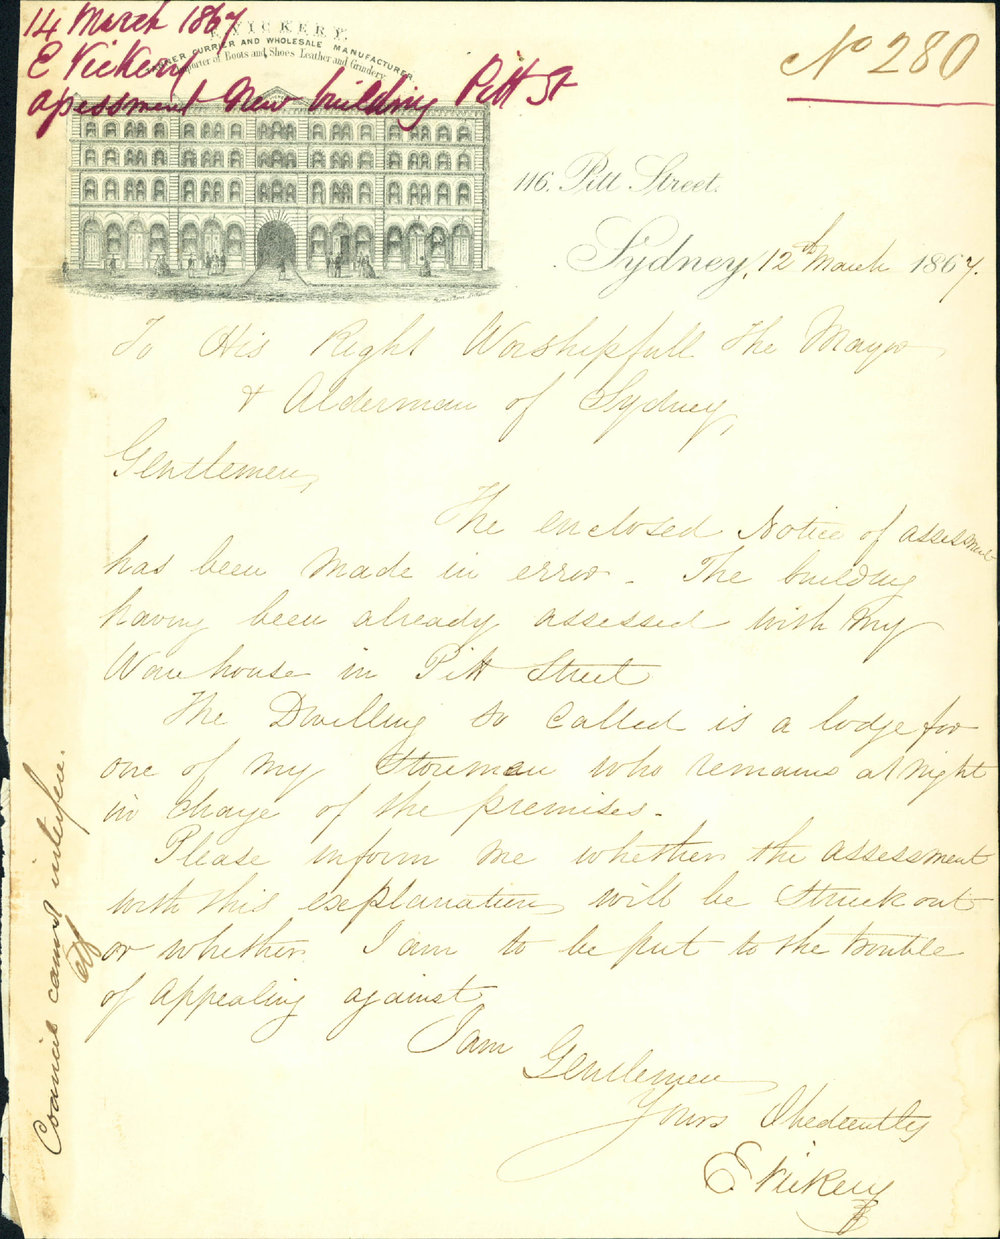 14 March 1867
E Vickery
assessment New building Pitt St
No 280
E. VICKERY.
TANNER, CURRIER AND WHOLESALE MANUFACTURER
Importer of Boots and Shoes Leather and Grindery
116. Pitt Street.
Sydney, 12th March 1867.
To His Right Worshipfull the Mayor
& Alderman of Sydney,
Gentlemen,
The enclosed Notice of assessment
has been made in error. The building
having been already assessed with my
Warehouse in Pitt Street
The Dwelling so called is a lodge for
one of my Storemen who remains at night
in charge of the premises.
Please inform me whether the assessment
with this explanation will be struck out
or whether I am to be put to the trouble
of appealing against
I am Gentlemen
Yours Obediently
E Vickery
Council cannot interfere.